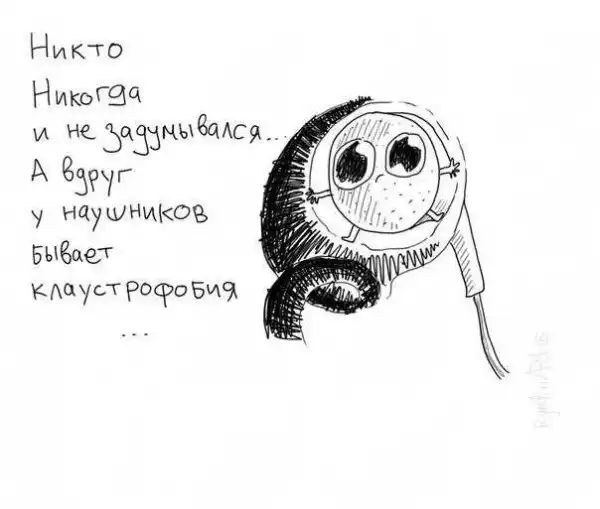 Никто
Никогда
и не задумывался...
А вдруг
у наушников
бывает
клаустрофобия
...